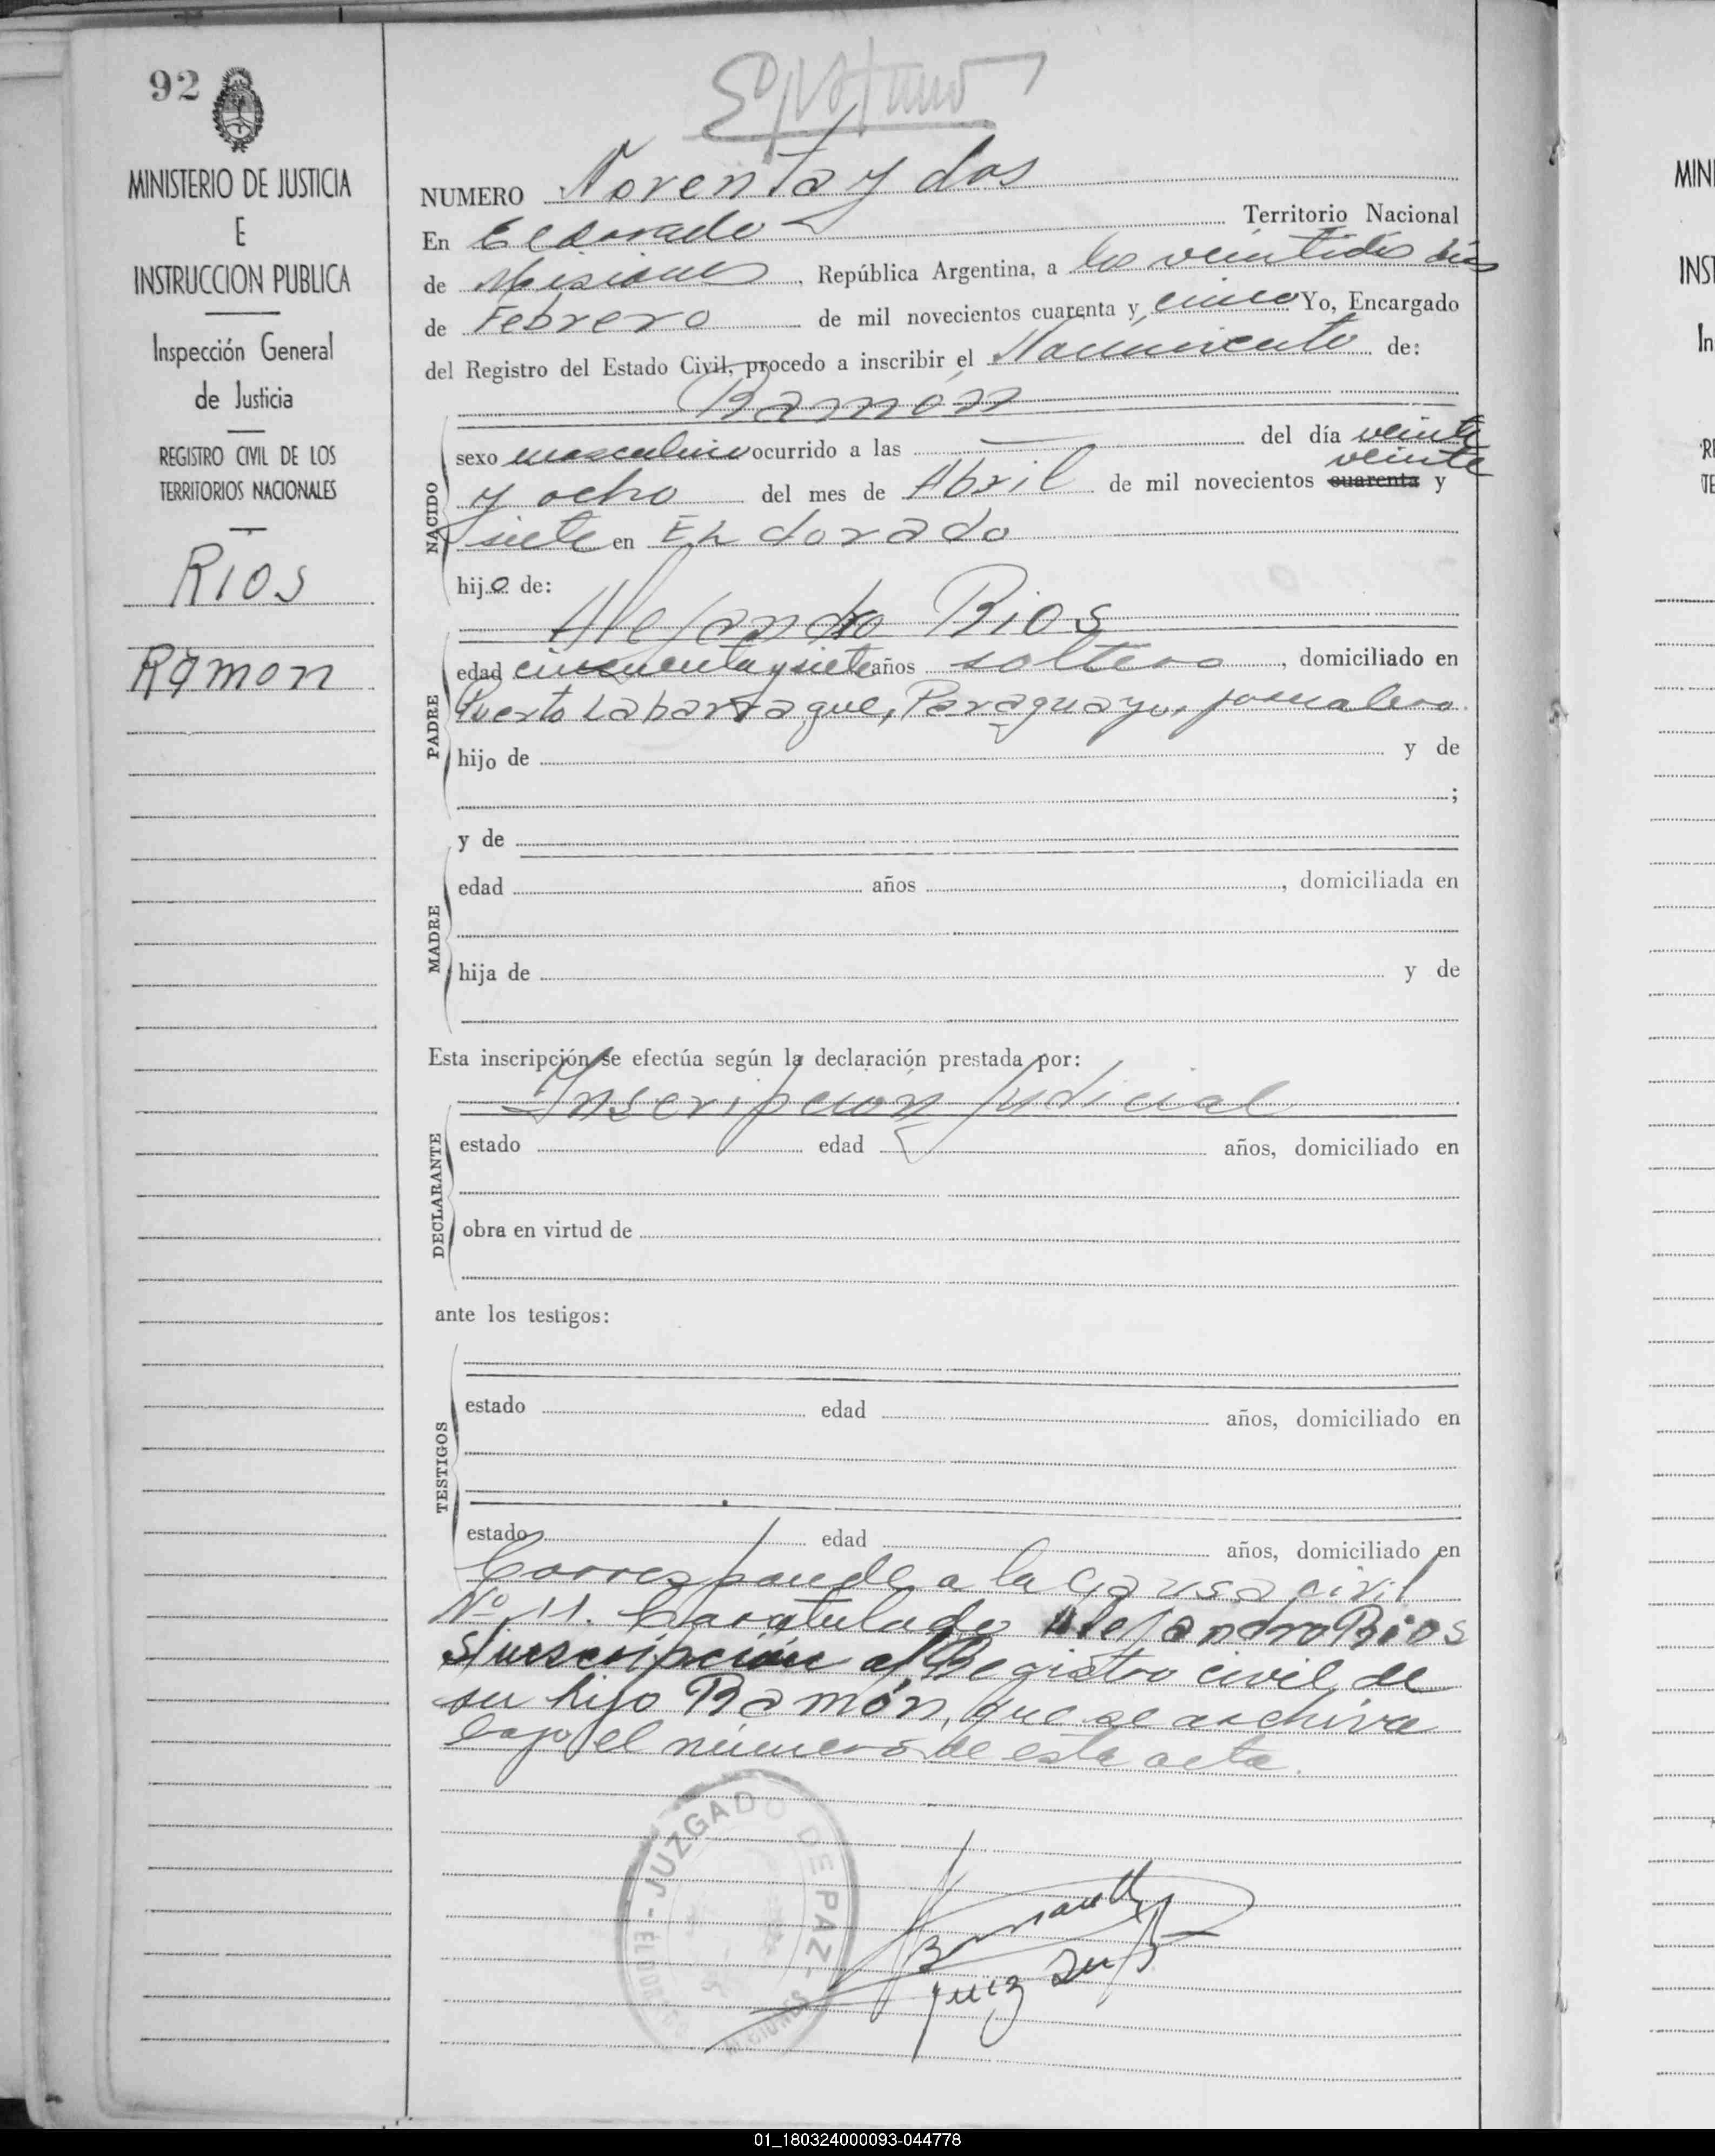 92
MINISTERIO DE JUSTICIA
E
INSTRUCCION PUBLICA
Inspección General
de Justicia
REGISTRO CIVIL DE LOS
TERRITORIOS NACIONALES
RIOS
Ramon
NUMERO Noventa y dos
En Eldorado Territorio Nacional
de Misiones, República Argentina, a los veintidós días
de Febrero de mil novecientos cuarenta y cinco Yo, Encargado
del Registro del Estado Civil, procedo a inscribir el Nacimiento de:
Ramón
NACIDO
sexo masculino ocurrido a las — del día veinte
y ocho del mes de Abril de mil novecientos cuarenta veinte y
siete en El dorado
hijo de:
Alejandro Rios
PADRE
edad cincuenta y siete años soltero, domiciliado en
Puerto Labarrague, Paraguayo, jornalero.
hijo de y de
;
y de
MADRE
edad años , domiciliada en
hija de y de
Esta inscripción se efectúa según la declaración prestada por:
Inscripción Judicial
DECLARANTE
estado edad años, domiciliado en
obra en virtud de
ante los testigos:
TESTIGOS
estado edad años, domiciliado en
estado edad años, domiciliado en
Corresponde a la Causa civil
Nº 11. Caratulado Alejandro Rios
s/inscripción al Registro civil de
su hijo Ramón, que se archiva
bajo el número de esta acta.
JUZGADO DE PAZ - ELDORADO - MISIONES
Juez Sup
MINI
INST
In
RE
TE
01_180324000093-044778